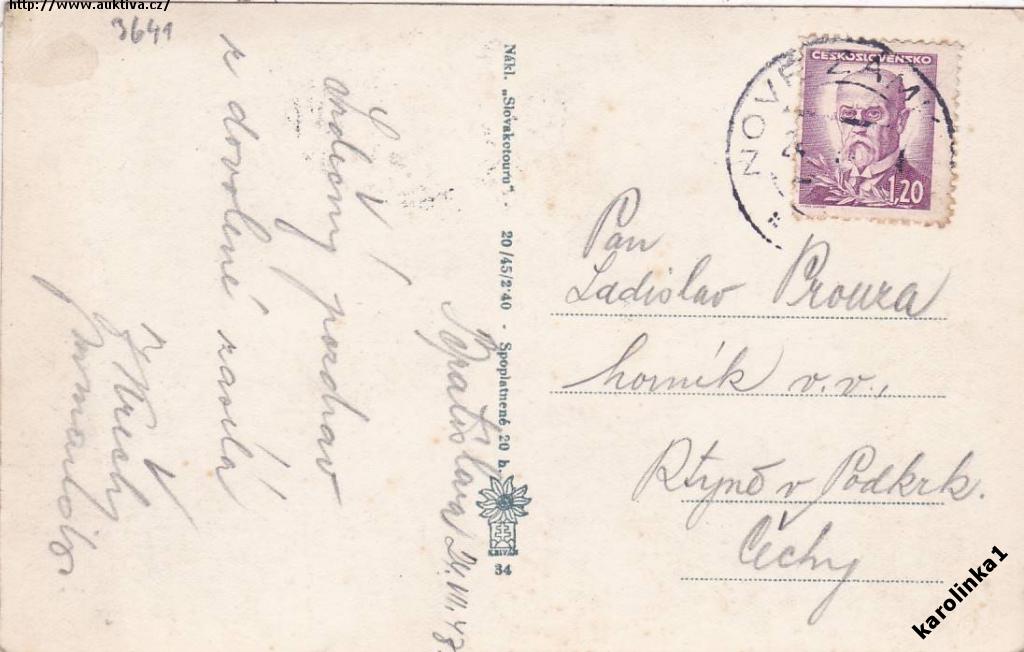 http://www.auktiva.cz/
3641
Srdečný pozdrav
z dovolené zasílá
Bratislava 21.VII.48.
Nákl. „Slovakotouru“ - 20/45/2·40 - Spoplatnené 20 h.
KRIVÁŇ
34
ČESKOSLOVENSKO
1,20
NOVÉ ZÁMK
Pan
Ladislav Prouza
horník v.v.,
Rtyně v Podkrk.
Čechy
karolinka1